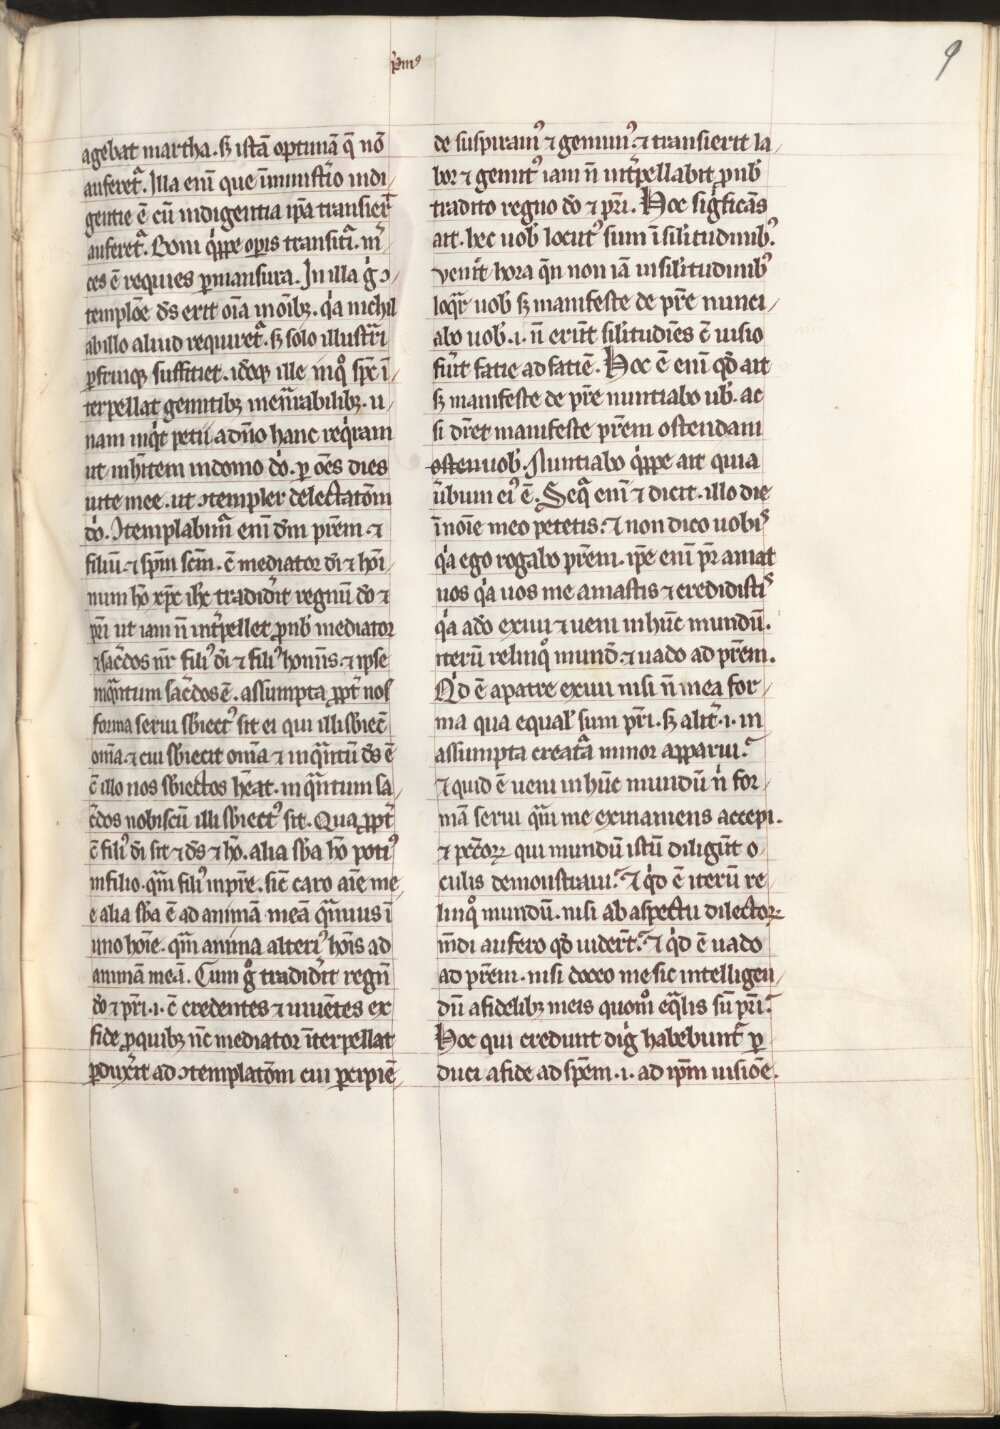 p̄m⁹
9
agebat martha. sꝫ istā optimā q̄ nō
auferet᷑. Illa eni᷑ que ī ministi̾o indi/
gentie ē cū indigentia ip̄a transier̄
auferet᷑. Boni q̈ppe opis transit᷑i. m̾/
ces ē requies ꝑmansura. In illa g̾ ↄ/
templōe ds̄ erit oīa in oībꝫ. q̾a nichil
ab illo aliud requiret᷑. sꝫ solo illust᷑ri
ꝑfruiqꝫ sufficiet. ideoqꝫ ille in qͦ spc̄ ī/
terpellat gemitibꝫ inenarrabilibꝫ. u/
nam inq̾t petii a dn̄o hanc req̾ram
ut inh̄item in domo di̾. ꝑ om̄s dies
uite mee. ut ↄtempler delectatōm
di̾. Ↄtemplabim᷑ eni᷑ dm̄ prēm. ⁊
filiū. ⁊ spm̄ scm̄. c̄ mediator di̾ ⁊ ho᷑i/
num hō xp̄c ih̄c tradidi̾t regnū do ⁊
pr̄i ut iam n̄ int̾pellet pro nob̾ mediator
⁊ sac̾dos nr̄ fili⁹ di̾ ⁊ fili⁹ hominis. ⁊ ipse
inqᵃntum sac̾dos ē. assumpta ꝓpt̾ nos
forma serui sb̾iect⁹ sit ei qui illi sb̾iec̄
omīa. ⁊ cui sb̾iecit omīa ⁊ inqᵃntū ds̄ ē
c̄ illo nos sb̾iectos hēat. inqᵃntum sa/
c̾dos nobiscū illi sb̾iect⁹ sit. Qua ꝓpt̾
c̄ fili⁹ di̾ sit ⁊ ds̄ ⁊ hō. alia sb̾a hō poti⁹
in filio. qᵃm fili⁹ in pr̄e. sic̄ caro aīe me/
e alia sb̾a ē ad animā meā qᵃmuis ī
uno ho᷑ie. qᵃm anima alteri⁹ ho᷑is ad
animā meā. Cum gͦ tradidi̾t regn̄
do ⁊ pr̄i .i. c̄ credentes ⁊ uiuētes ex
fide ꝓ quibꝫ nc̄ mediator īterpellat
ꝑdux̾it ad ↄtemplatōm cui ꝑcipiē/
de suspiram⁹ ⁊ gemim⁹. ⁊ transierit la/
bor ⁊ gemit⁹ iam n̄ int̾pellabit ꝓ nob̾
tradito regno do ⁊ pr̄i. Hoc sig̾ficās
ait. hec uob̾ locut⁹ sum ī sil̾itudinib⁹.
venit̄ hora qn̄ non iā in sil̾itudinib⁹
loqr̄ uob̾ sꝫ manifeste de pr̄e nunci/
abo uob̾ .i. n̄ erūt sil̾itudīes c̄ uisio
fu̾it facie ad faciē. Hoc ē eni᷑ qd̾ ait
sꝫ manifeste de pr̄e nuntiabo ub̾. ac
si di̾ret manifeste prēm ostendam
osten uob̾. Nuntiabo q̈ppe ait quia
u̾bum ei⁹ ē. Seqᵃ eni᷑ ⁊ dicit. illo die
ī noīe meo petetis. ⁊ non dico uobiˢ
q̾a ego rogabo prēm. ip̄e eni᷑ pr̄ amat
uos q̾a uos me amastis ⁊ credidistiˢ
q̾a a do exiui ⁊ ueni in hūc mundū.
iterū relinqͦ mund̄. ⁊ uado ad prēm.
Qd̾ ē a patre exiui nisi n̄ mea for/
ma qua equal̾ sum pr̄i. sꝫ alit̾ .i. in
assumpta creat᷑a minor apparui.
⁊ quid ē ueni in hūc mundū n̾ for/
mā serui qᵃm me exinaniens accepi.
⁊ pcc̄orꝝ qui mundū istū diligūt o/
culis demonstraui. ⁊ q̾d ē iterū re/
linqͦ mundū. nisi ab aspectu dilectorꝝ
m̄di aufero qd̾ uider̄t. ⁊ q̾d ē uado
ad prēm. nisi doceo me sic intelligen/
dū a fidelibꝫ meis quomͦ eqᵃlis sū pr̄i.
Hoc qui credunt dig̾ habebunt᷑ ꝑ
duci a fide ad spēm .i. ad ip̄m uisiōe.